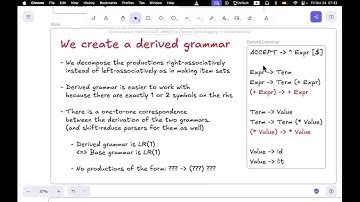 Fri Oct 24 07:33
We create a derived grammar
- We decompose the productions right-associatively
instead of left-associatively as in making item sets
- Derived grammar is easier to work with
because there are exactly 1 or 2 symbols on the rhs
- There is a one-to-one correspondence
between the derivation of the two grammars.
(and shift-reduce parsers for them as well)
- Derived grammar is LR(1)
<=> Base grammar is LR(1)
- No productions of the form: ??? -> (???) ???
Derived Grammar
ACCEPT -> ^ Expr [$]
Expr -> Term
Expr -> Term (+ Expr)
(+ Expr) -> + Expr
Term -> Value
Term -> Term (* Value)
(* Value) -> * Value
Value -> id
Value -> lit
57%